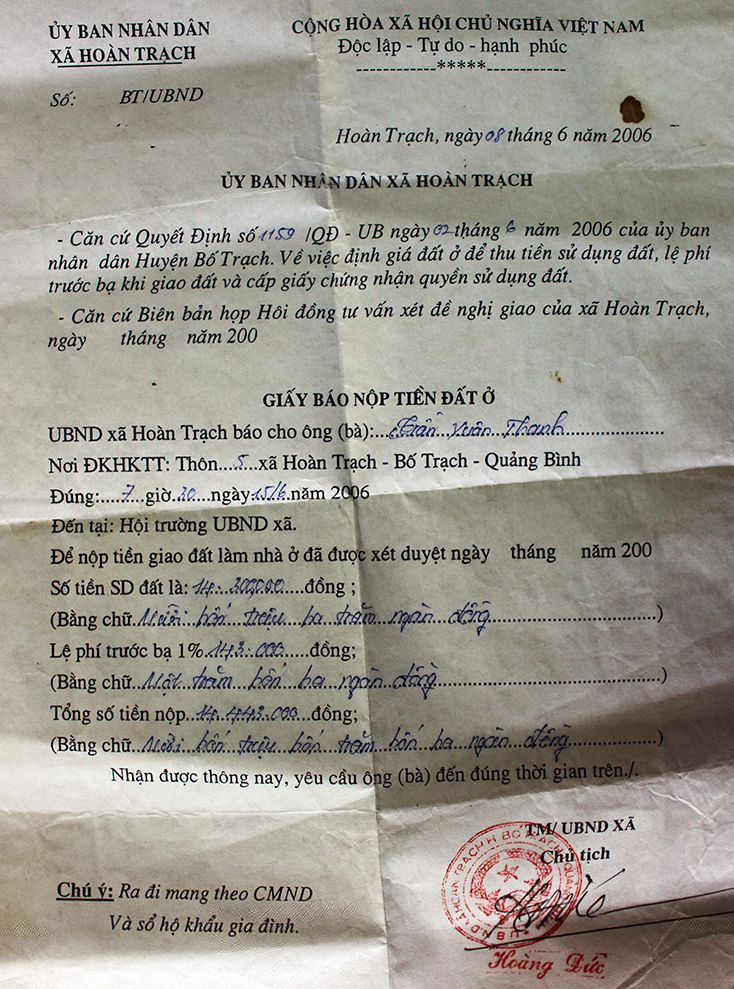 ỦY BAN NHÂN DÂN
XÃ HOÀN TRẠCH
CỘNG HÒA XÃ HỘI CHỦ NGHĨA VIỆT NAM
Độc lập - Tự do - hạnh phúc
------------*****------------
Số: BT/UBND
Hoàn Trạch, ngày 08 tháng 6 năm 2006
ỦY BAN NHÂN DÂN XÃ HOÀN TRẠCH
- Căn cứ Quyết Định số 1159 /QĐ - UB ngày 02 tháng 6 năm 2006 của ủy ban
nhân dân Huyện Bố Trạch. Về việc định giá đất ở để thu tiền sử dụng đất, lệ phí
trước bạ khi giao đất và cấp giấy chứng nhận quyền sử dụng đất.
- Căn cứ Biên bản họp Hôi đồng tư vấn xét đề nghị giao của xã Hoàn Trạch,
ngày tháng năm 200
GIẤY BÁO NỘP TIỀN ĐẤT Ở
UBND xã Hoàn Trạch báo cho ông (bà):...Trần Xuân Thanh...
Nơi ĐKHKTT: Thôn...5...xã Hoàn Trạch - Bố Trạch - Quảng Bình
Đúng:.....7...giờ.30...ngày 15/6 năm 2006
Đến tại: Hội trường UBND xã.
Để nộp tiền giao đất làm nhà ở đã được xét duyệt ngày tháng năm 200
Số tiền SD đất là: 14.300.000.....đồng ;
(Bằng chữ...Mười bốn triệu ba trăm ngàn đồng...)
Lệ phí trước bạ 1%...143.000.....đồng;
(Bằng chữ...Một trăm bốn ba ngàn đồng...)
Tổng số tiền nộp...14.443.000...đồng;
(Bằng chữ...Mười bốn triệu bốn trăm bốn ba ngàn đồng...)
Nhận được thông nay, yêu cầu ông (bà) đến đúng thời gian trên./.
TM/ UBND XÃ
Chủ tịch
Chú ý: Ra đi mang theo CMND
Và sổ hộ khẩu gia đình.
Hoàng Đức